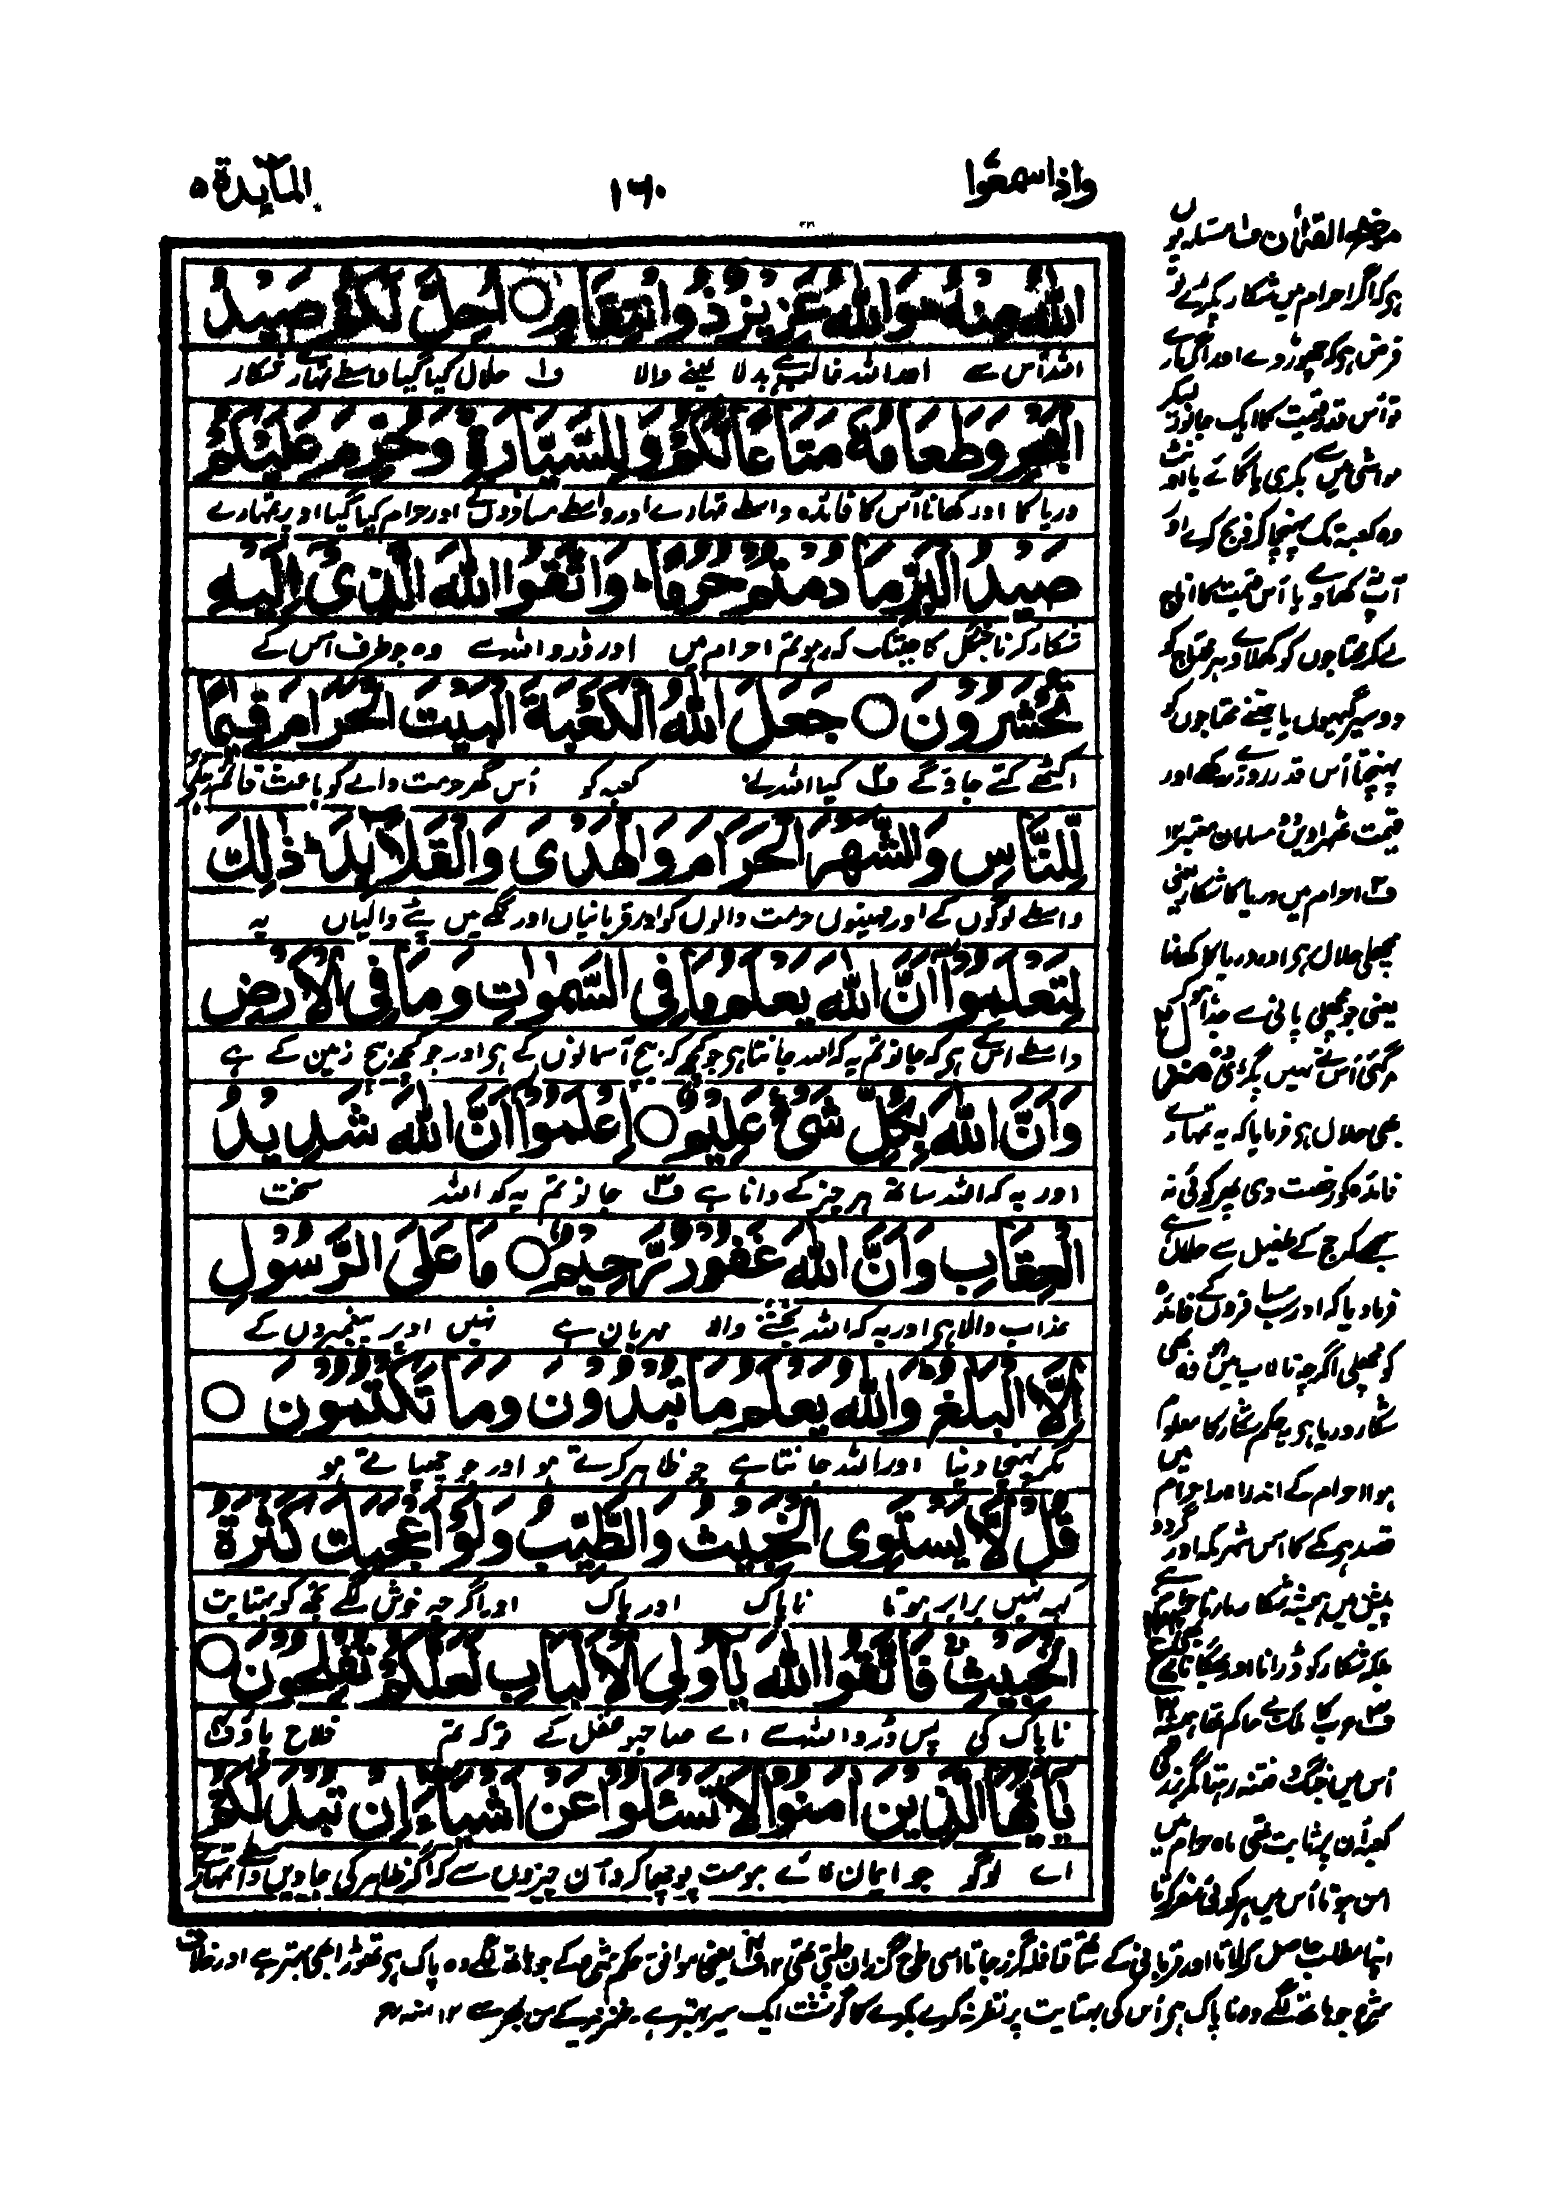 واذاسمعوا
١٦٠
المآئدة ٥
اللّٰهُ مِنْهُ ؕ وَاللّٰهُ عَزِيْزٌ ذُو انْتِقَامٍ ○ اُحِلَّ لَكُمْ صَيْدُ
اللہ اُس سے اور اللہ غالب ہے بدلا لینے والا ف۱ حلال کیا گیا واسطے تمہارے شکار
الْبَحْرِ وَطَعَامُهٗ مَتَاعًا لَّكُمْ وَلِلسَّيَّارَةِ ۚ وَحُرِّمَ عَلَيْكُمْ
دریا کا اور کھانا اُس کا فائدہ واسطے تمہارے اور واسطے مسافروں کے اور حرام کیا گیا اوپر تمہارے
صَيْدُ الْبَرِّ مَا دُمْتُمْ حُرُمًا ؕ وَاتَّقُوا اللّٰهَ الَّذِىْٓ اِلَيْهِ
شکار کرنا جنگل کا جبتک کہ ہو تم احرام میں اور ڈرو اللہ سے وہ جو طرف اُس کے
تُحْشَرُوْنَ ○ جَعَلَ اللّٰهُ الْكَعْبَةَ الْبَيْتَ الْحَرَامَ قِيٰمًا
اکٹھے کئے جاؤگے ف۲ کیا اللہ نے کعبہ کو اُس گھر حرمت والے کو باعث قائم رہنے کا
لِّلنَّاسِ وَالشَّهْرَ الْحَرَامَ وَالْهَدْىَ وَالْقَلَآئِدَ ؕ ذٰلِكَ
واسطے لوگوں کے اور مہینوں حرمت والوں کو اور قربانیاں اور گلے میں پٹے والیاں یہ
لِتَعْلَمُوْٓا اَنَّ اللّٰهَ يَعْلَمُ مَا فِى السَّمٰوٰتِ وَمَا فِى الْاَرْضِ
واسطے اس کے ہی کہ جانو تم یہ کہ اللہ جانتا ہی جو کچھ کہ بیچ آسمانوں کے ہی اور جو کچھ بیچ زمین کے ہے
وَاَنَّ اللّٰهَ بِكُلِّ شَىْءٍ عَلِيْمٌ ○ اِعْلَمُوْٓا اَنَّ اللّٰهَ شَدِيْدُ
اور یہ کہ اللہ ساتھ ہر چیز کے دانا ہے ف۳ جانو تم یہ کہ اللہ سخت
الْعِقَابِ وَاَنَّ اللّٰهَ غَفُوْرٌ رَّحِيْمٌ ○ مَا عَلَى الرَّسُوْلِ
عذاب والا ہی اور یہ کہ اللہ بخشنے والا مہربان ہے نہیں اوپر پیغمبروں کے
اِلَّا الْبَلٰغُ ؕ وَاللّٰهُ يَعْلَمُ مَا تُبْدُوْنَ وَمَا تَكْتُمُوْنَ ○
مگر پہنچا دینا اور اللہ جانتا ہے جو ظاہر کرتے ہو اور جو چھپاتے ہو
قُلْ لَّا يَسْتَوِى الْخَبِيْثُ وَالطَّيِّبُ وَلَوْ اَعْجَبَكَ كَثْرَةُ
کہہ نہیں برابر ہوتا ناپاک اور پاک اور اگرچہ خوش لگے تجھ کو بہتایت
الْخَبِيْثِ ۚ فَاتَّقُوا اللّٰهَ يٰٓاُولِى الْاَلْبَابِ لَعَلَّكُمْ تُفْلِحُوْنَ ○
ناپاک کی پس ڈرو اللہ سے اے صاحبو عقل کے توکہ تم فلاح پاؤ ف۴
يٰٓاَيُّهَا الَّذِيْنَ اٰمَنُوْا لَا تَسْـَٔلُوْا عَنْ اَشْيَآءَ اِنْ تُبْدَ لَكُمْ
اے لوگو جو ایمان لائے ہو مت پوچھا کرو اُن چیزوں سے کہ اگر ظاہر کی جاویں واسطے تمہارے
موضح القرآن ف۱ مسئلہ یوں
ہی کہ اگر احرام میں شکار پکڑے تو
فرض ہی کہ چھوڑ دے اور اگر مارے
تو اُس قدر قیمت کا ایک جانور لیکر
مواشی میں سے بکری یا گائے یا اونٹ
وہ کعبہ تک پہنچا کر ذبح کرے اور
آپ نہ کھاوے یا اُس قیمت کا اناج
لے کر محتاجوں کو کھلاوے ہر محتاج کو
دو سیر گیہوں یا جتنے محتاجوں کو
پہنچتا اُس قدر روزے رکھے اور
قیمت ٹھہراویں دو مسلمان معتبر ۱۲
ف۲ احرام میں دریا کا شکار یعنی
مچھلی حلال ہی اور دریا کا کھانا
یعنی جو مچھلی پانی سے جدا ہو کر
مر گئی اُس نے نہیں پکڑی
بھی حلال ہی فرمایا کہ یہ تمہارے
فائدہ کو رخصت دی پھر کوئی نہ
سمجھے کہ حج کے طفیل سے حلال ہے
فرما دیا کہ اور سب مسافروں کے فائدہ
کو مچھلی اگرچہ تالاب میں ہو وہ بھی
شکار دریا ہی یہ حکم شکار کا معلوم
ہوا احرام کے اندر اور احرام میں
قصد ہی کے کا اس شہر مکہ اور گرد و
پیش میں ہمیشہ شکار مارنا حرام ہے
بلکہ شکار کو ڈرانا اور بھگانا بھی
ف۳ عرب کا ملک بے حاکم تھا ہمیشہ
اُس میں جنگ و فتنہ رہتا مگر بزرگی
کعبہ اُن پر ثابت تھی ماہ حرام میں
امن ہوتا اُس میں ہر کوئی سفر کرتا
اپنا مطلب حاصل کرلاتا اور قربانی کے ساتھ قافلہ گزر جاتا اسی طرح گزران چلتی تھی ۱۲ ف۴ یعنی موافق حکم شرع کے جو ہاتھ لگے وہ پاک ہی تھوڑا بھی بہتر ہے اور خلاف
شرع جو ہاتھ لگے وہ ناپاک ہی اُس کی بہتایت پر نظر نہ کرے بکرے کا گوشت ایک سیر بہتر ہے خنزیر کے من بھر سے ۱۲ منہ